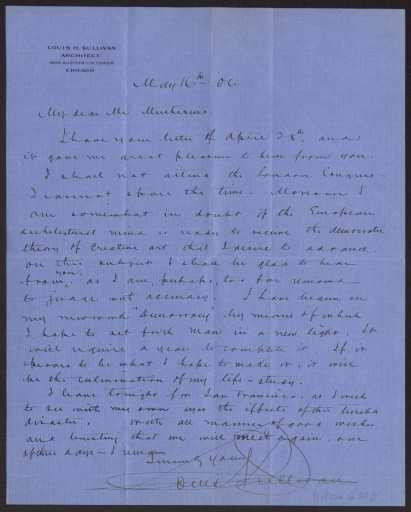 LOUIS H. SULLIVAN
ARCHITECT
1600 AUDITORIUM TOWER
CHICAGO
May 16th 06.
My dear Mr Muthesius.
I have your letter of April 28th, and
it gave me great pleasure to hear from you.
I shall not attend the London Congress.
I cannot spare the time. Moreover I
am somewhat in doubt if the European
architectural mind is ready to receive the democratic
theory of creative art that I desire to advance.
On this subject I shall be glad to hear
from you, as I am perhaps too far removed
to judge with accuracy. I have begun on
my new work "Democracy" by means of which
I hope to set forth Man in a new light. It
will require a year to complete it. If it
proves to be what I hope to make it, it will
be the culmination of my life-study.
I leave tonight for San Francisco, as I wish
to see with my own eyes the effects of the
disaster. With all manner of good wishes
and trusting that we will meet again, one
of these days - I remain
Sincerely Yours
Louis H Sullivan